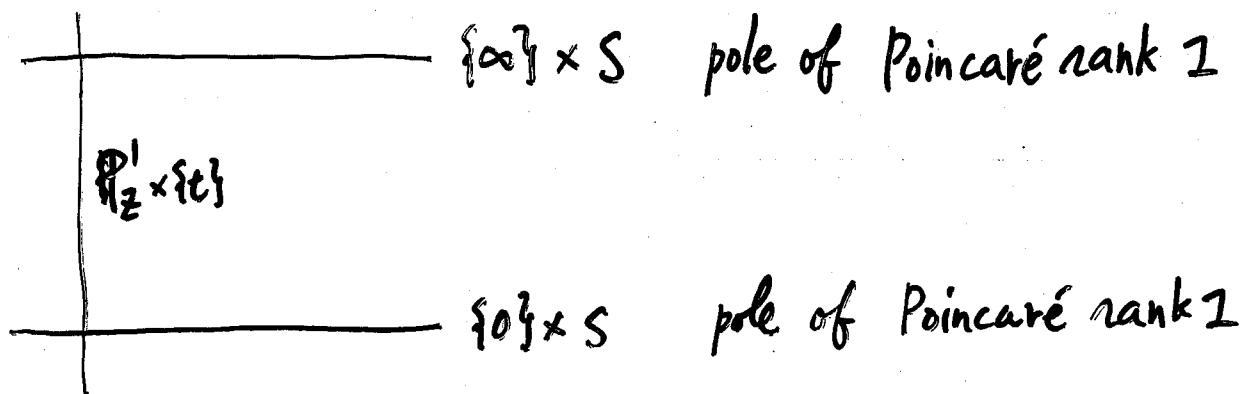 {∞} × S pole of Poincaré rank 1
ℙ¹_z × {t}
{0} × S pole of Poincaré rank 1